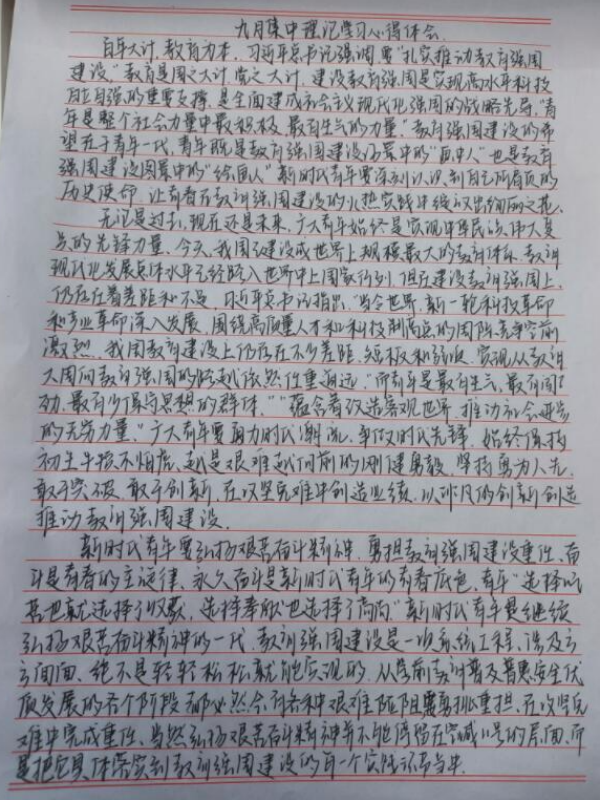 九月集中理论学习心得体会
百年大计,教育为本,习近平总书记强调,要"扎实推动教育强国
建设。"教育是国之大计,党之大计,建设教育强国是实现高水平科技
自立自强的重要支撑,是全面建成社会主义现代化强国的战略先导,"青
年是整个社会力量中最积极、最有生气的力量。"教育强国建设的希
望在于青年一代,青年既是教育强国建设的图景中的"画中人"也是教育
强国建设图景中的"绘画人"新时代青年要深刻认识到自己所肩负的
历史使命,让青春在教育强国建设的火热实践中绽放出绚丽之花。
无论是过去、现在还是未来,广大青年始终是实现中华民族伟大复
兴的先锋力量。今天,我国已建成世界上规模最大的教育体系,教育
现代化发展总体水平已经跨入世界中上国家行列,但在建设教育强国上,
仍存在着差距和不足。习近平总书记指出,"当今世界,新一轮科技革命
和产业革命深入发展,围绕高质量人才和科技制高点的国际竞争空前
激烈。我国教育建设上仍存在不少差距、短板和弱项,实现从教育
大国向教育强国的跨越依然任重道远。"而青年是最有生气、最有闯
劲、最有少保守思想的群体。""蕴含着改造客观世界、推动社会进步
的无穷力量。"广大青年要勇立时代潮流,争做时代先锋,始终保持
初生牛犊不怕虎、越是艰难越向前的刚健勇毅,坚持勇为人先,
敢于突破、敢于创新,在攻坚克难中创造业绩,以非凡的创新创造
推动教育强国建设。
新时代青年要弘扬艰苦奋斗精神,勇担教育强国建设重任。奋
斗是青春的主旋律,永久奋斗是新时代青年的青春底色,青年"选择吃
苦也就选择了收获,选择奉献也选择了高尚"新时代青年要继续
弘扬艰苦奋斗精神的一代,教育强国建设是一项系统工程,涉及方
方面面,绝不是轻轻松松就能实现的。从学前教育普及普惠安全优
质发展的各个阶段都必然会有各种艰难险阻,要勇挑重担,在攻坚克
难中完成重任。当然弘扬艰苦奋斗精神并不能停留在空喊口号的层面,而
是把它具体落实到教育强国建设的每一个实际行动当中。